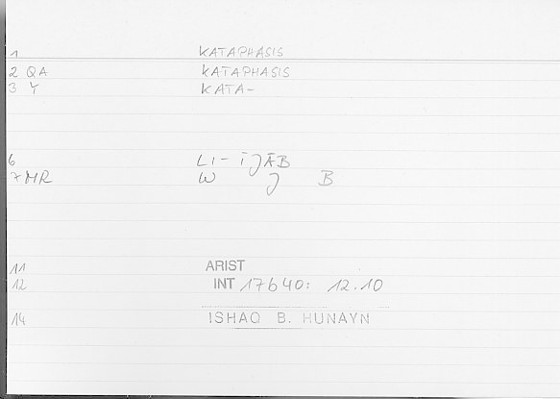 1 KATAPHASIS
2 QA KATAPHASIS
3 Y KATA-
6 LI-ĪJĀB
7 MR W J B
11 ARIST
12 INT 17b40: 12.10
14 ISHAQ B. HUNAYN